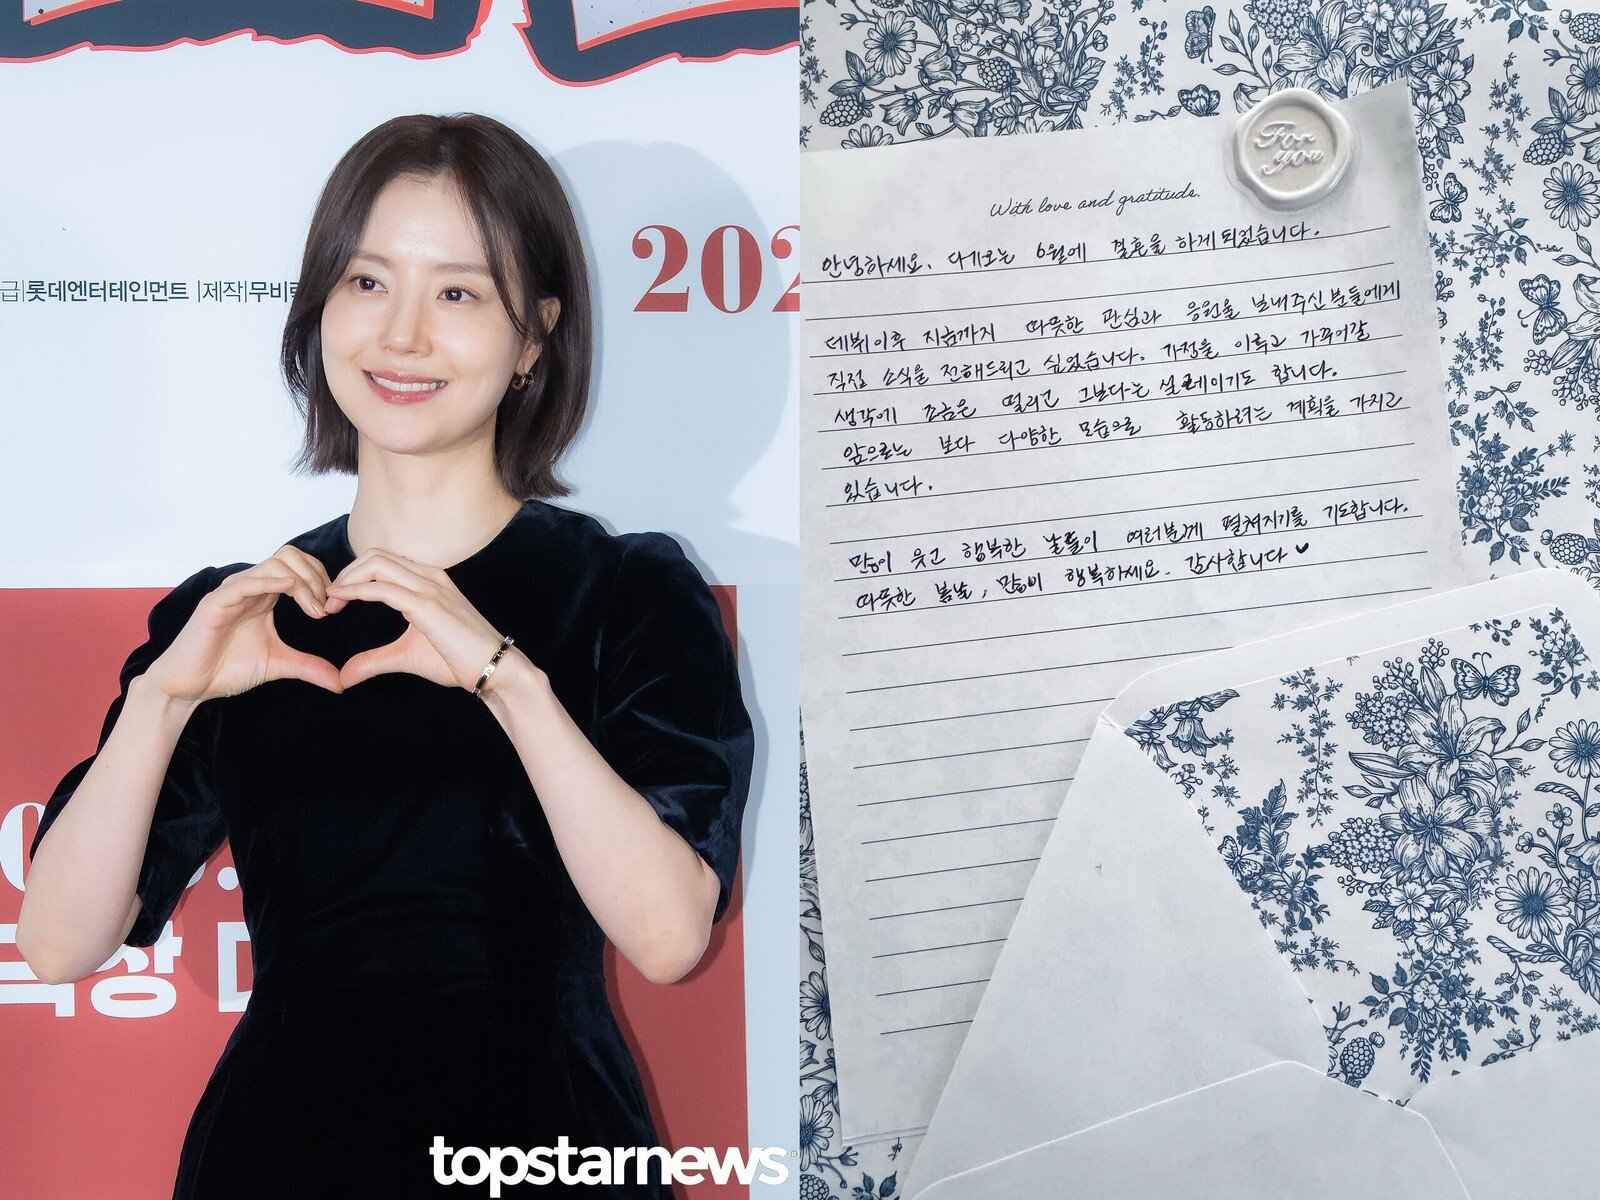 202
급|롯데엔터테인먼트 |제작|무비락
극장 대
topstarnews
For you
With love and gratitude.
안녕하세요. 다가오는 6월에 결혼을 하게되었습니다.
데뷔이후 지금까지 따뜻한 관심과 응원을 보내주신분들에게
직접 소식을 전해드리고 싶었습니다. 가정을 이루고 가꾸어갈
생각에 조금은 떨리고 그보다는 설레이기도 합니다.
앞으로는 보다 다양한 모습으로 활동하려는 계획을 가지고
있습니다.
많이 웃고 행복한 날들이 여러분께 펼쳐지기를 기도합니다.
따뜻한 봄날, 많이 행복하세요. 감사합니다 ♥